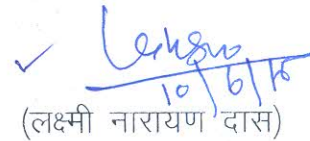 10/6/16
(लक्ष्मी नारायण दास)